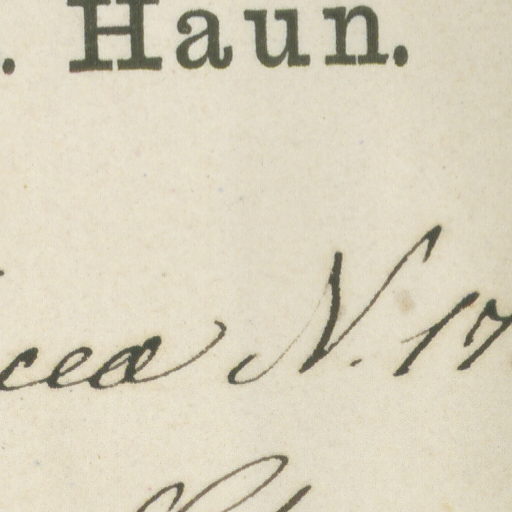 . Haun.
cea N. 17